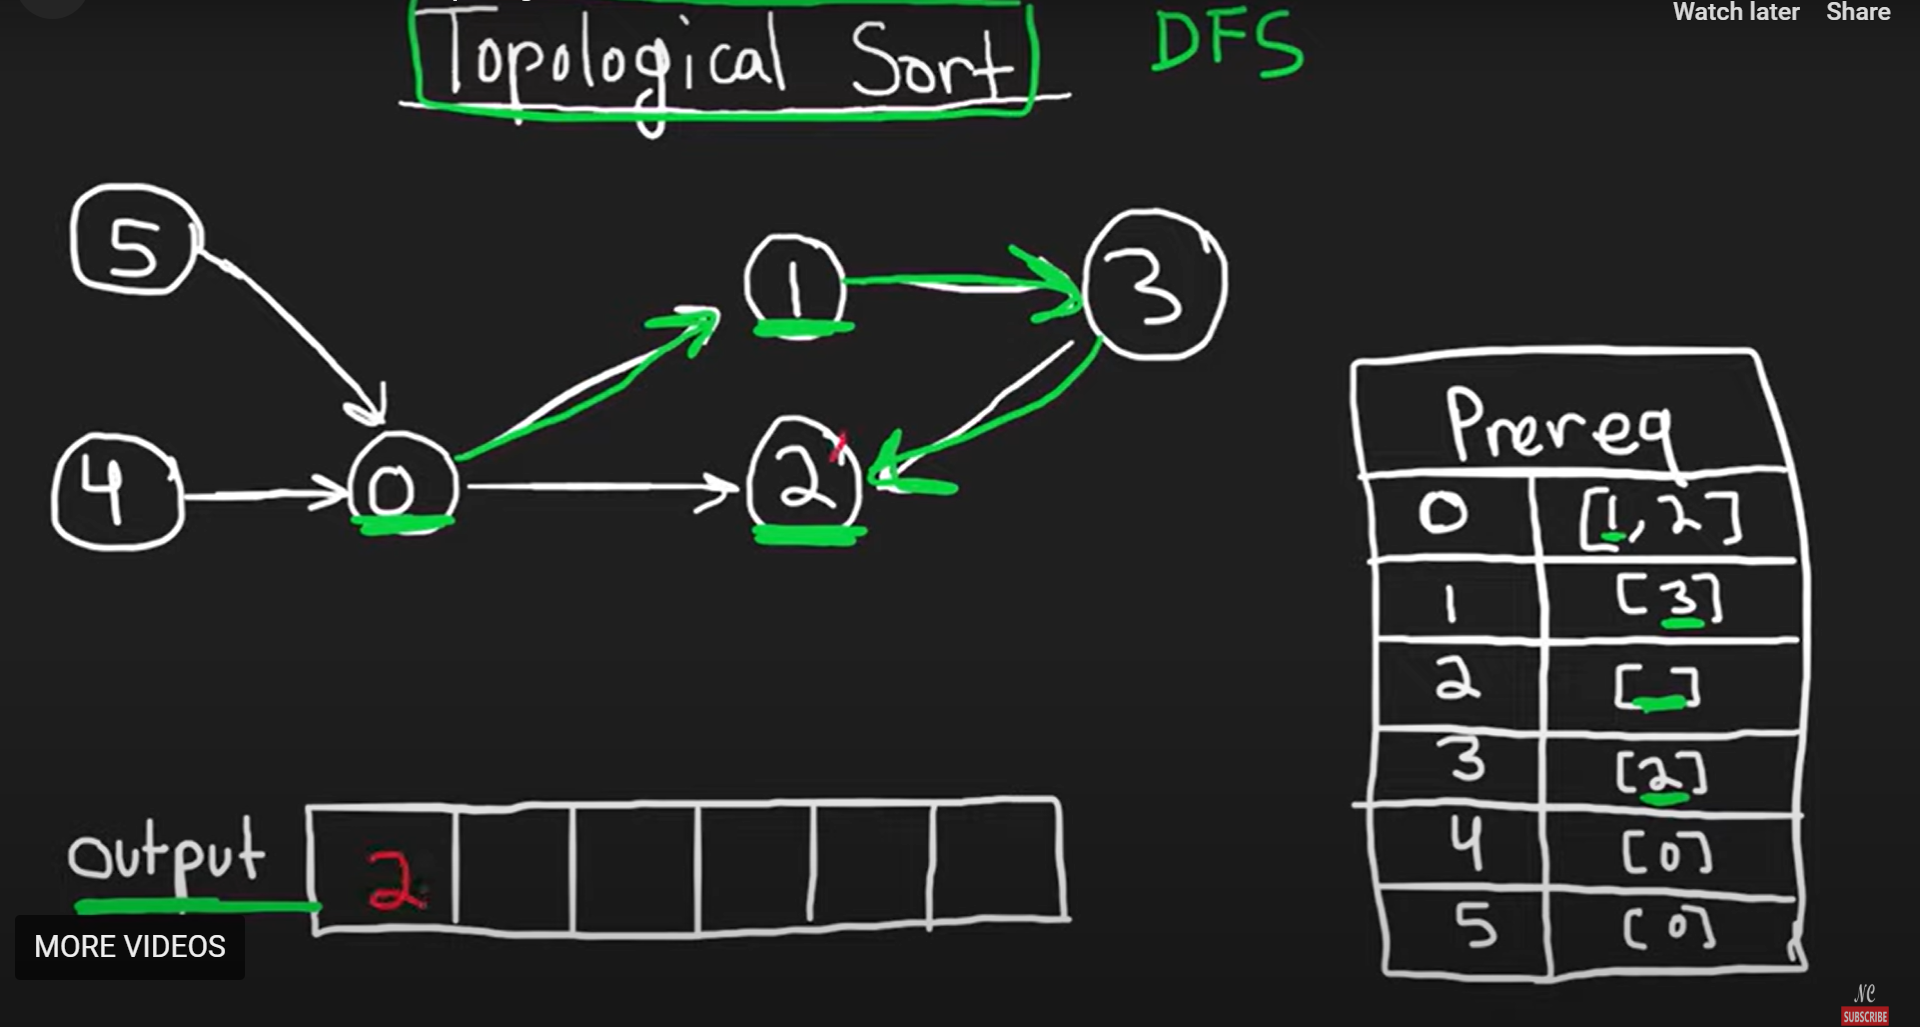 Watch later Share
Topological Sort DFS
5
1 3
4 0 2
Prereq
0 [1,2]
1 [3]
2 [ ]
3 [2]
4 [0]
5 [0]
output 2
MORE VIDEOS
NC
SUBSCRIBE